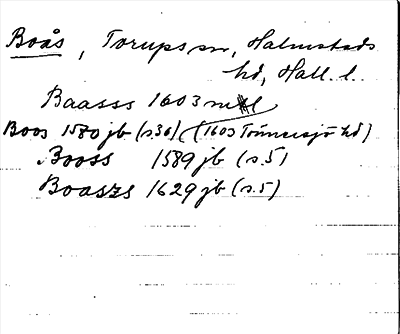 Boås, Torups sn, Halmstads
hd, Hall. l.
Baasss 1603 ml
Boos 1580 jb (s.36) (1603 Tönnersjö hd)
Booss 1589 jb (s.5)
Boaszs 1629 jb (s.5)